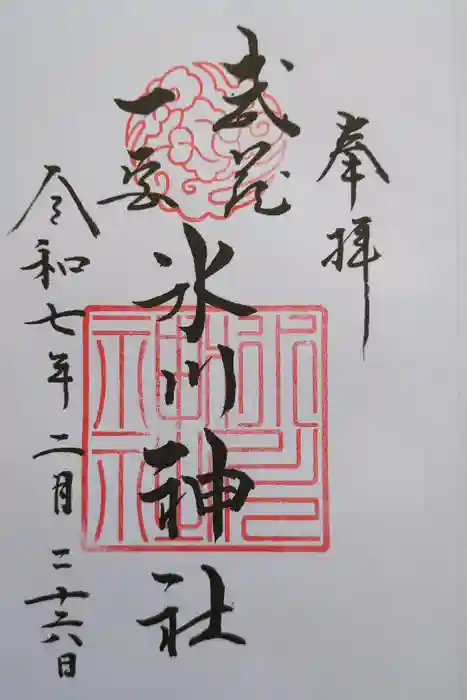 奉拝
武蔵
一宮
氷川神社
令和七年二月二十六日